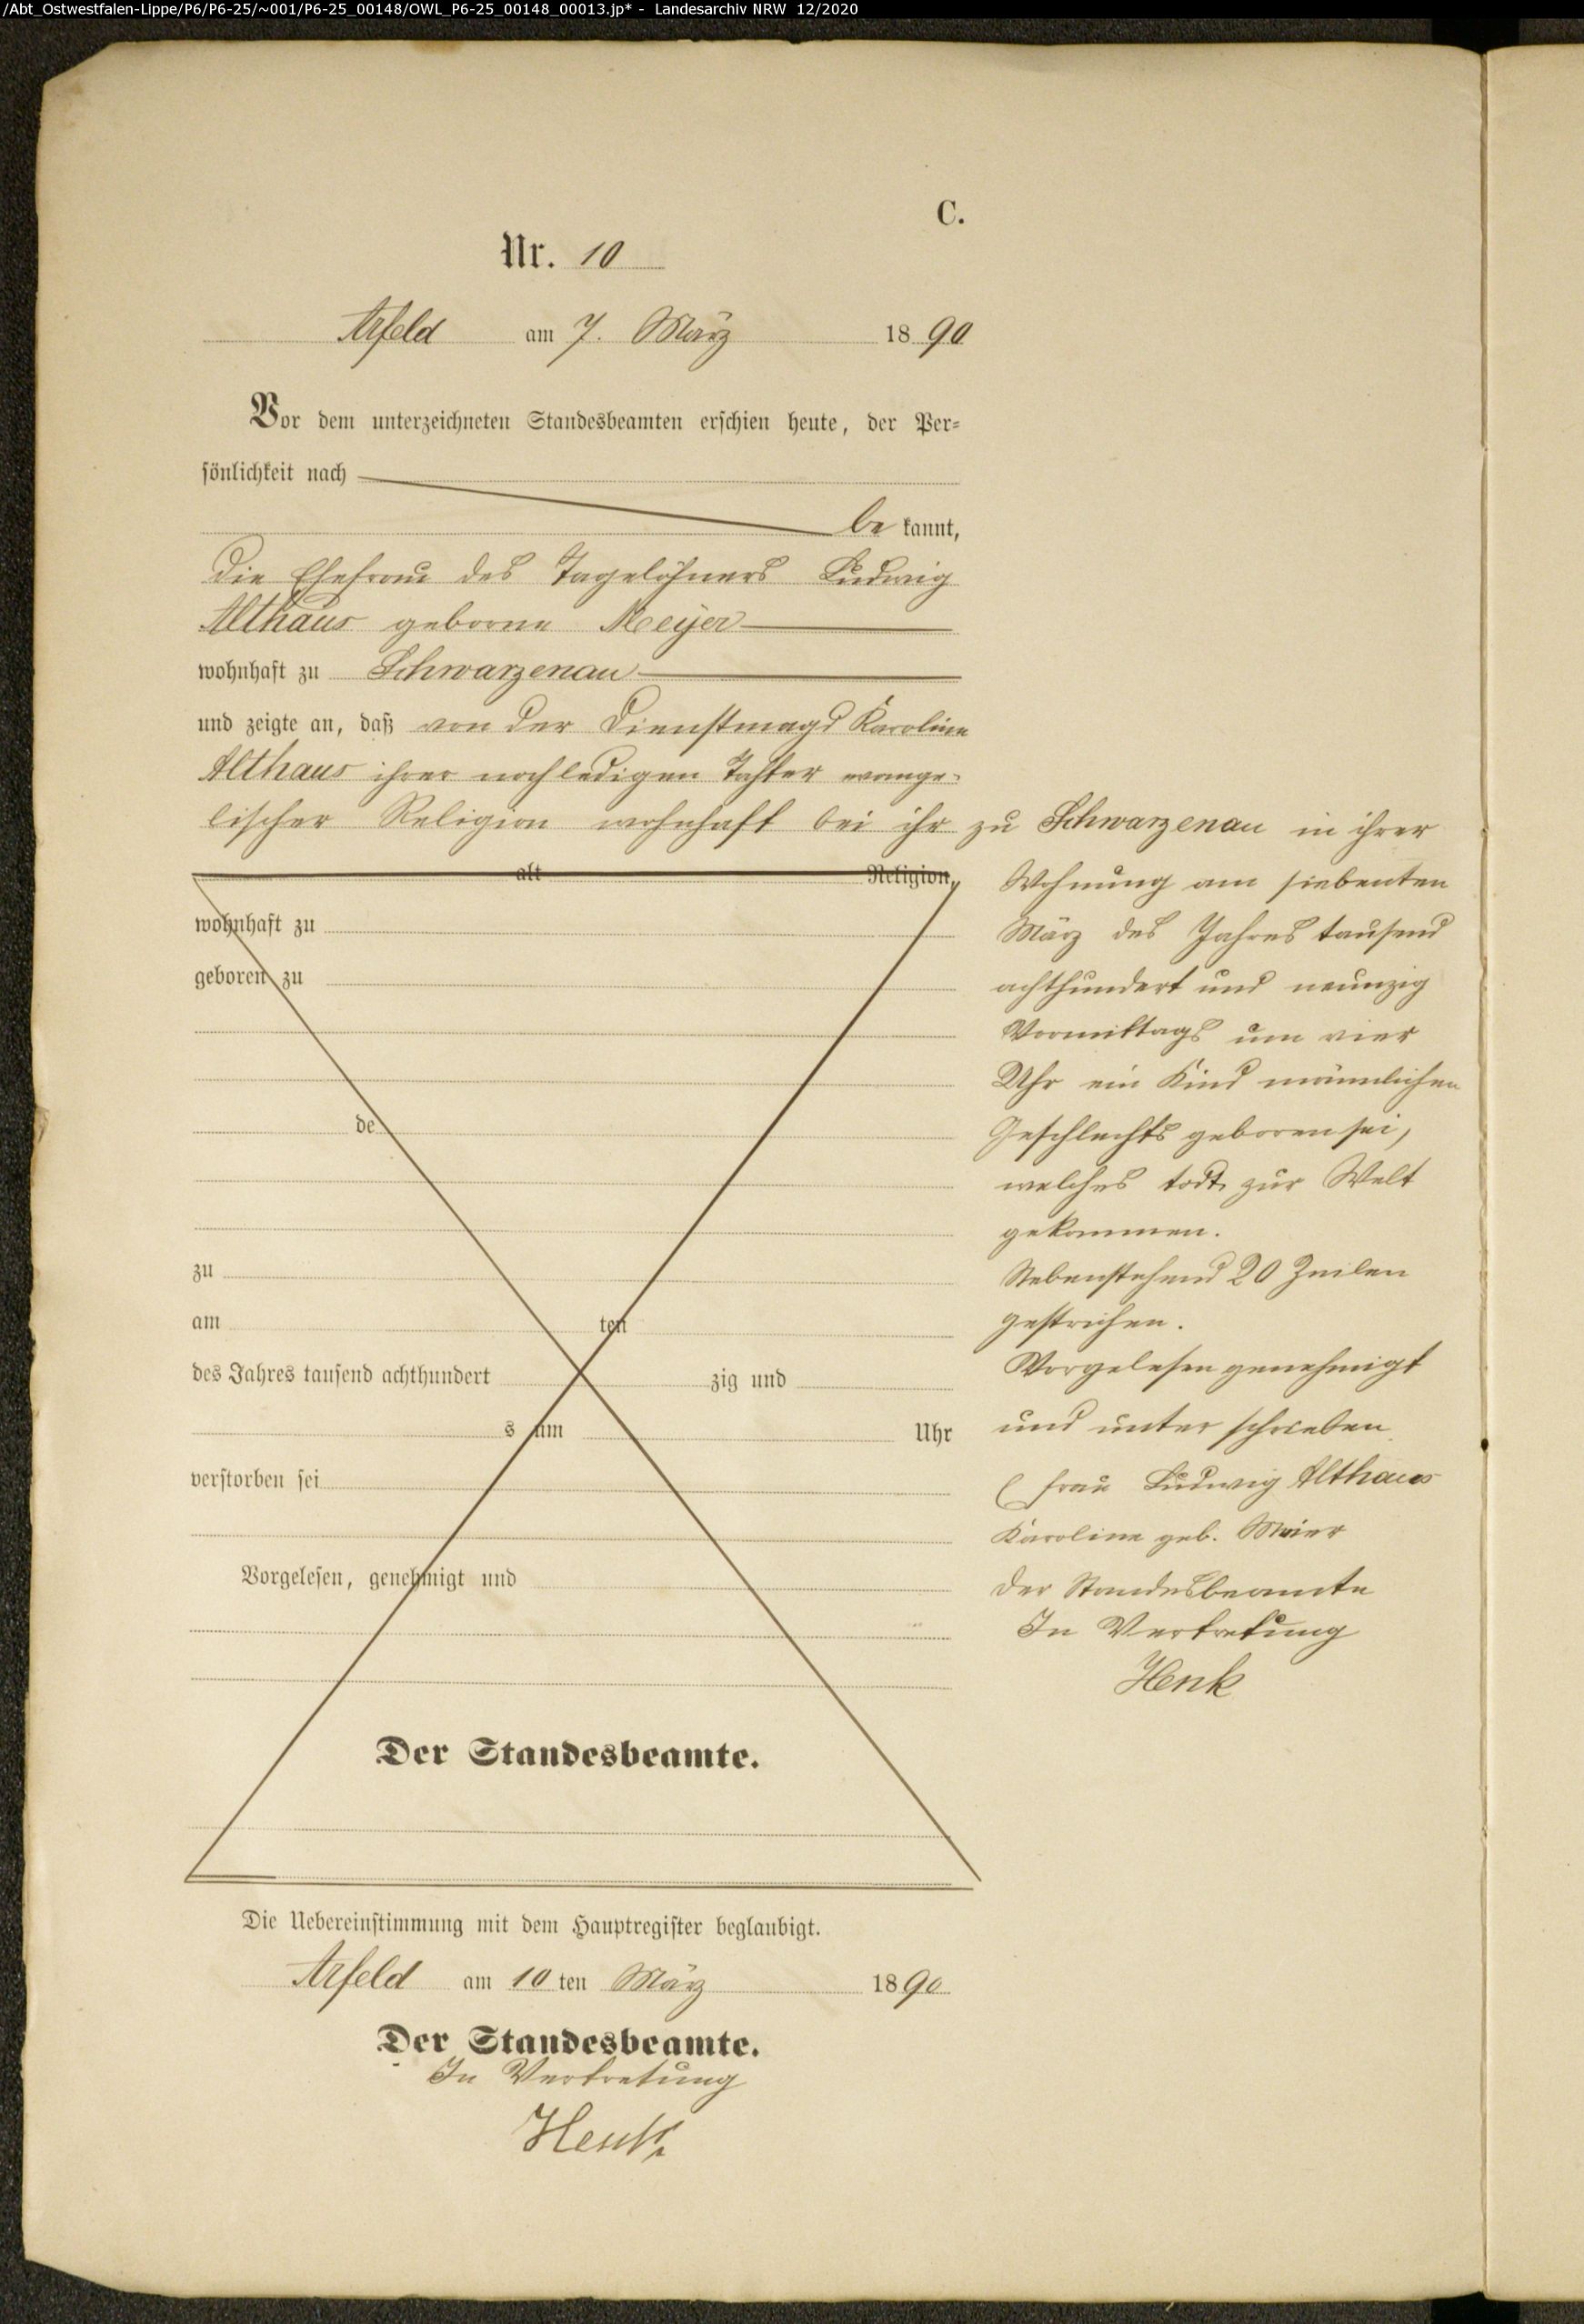 /Abt_Ostwestfalen-Lippe/P6/P6-25/~001/P6-25_00148/OWL_P6-25_00148_00013.jp* - Landesarchiv NRW 12/2020
C.
Nr. 10
Arfeld am 7. März 1890
Vor dem unterzeichneten Standesbeamten erschien heute, der Per-
sönlichkeit nach
be kannt,
die Ehefrau des Tagelöhners Ludwig
Althaus geborne Meyer
wohnhaft zu Schwarzenau
und zeigte an, daß von der Dienstmagd Karoline
Althaus ihrer noch ledigen Tochter evange-
lischer Religion wohnhaft bei ihr zu Schwarzenau in ihrer
alt Religion,
wohnhaft zu
geboren zu
de
zu
am ten
des Jahres tausend achthundert zig und
s um Uhr
verstorben sei
Vorgelesen, genehmigt und
Der Standesbeamte.
Wohnung am siebenten
März des Jahres tausend
achthundert und neunzig
Vormittags um vier
Uhr ein Kind männlichen
Geschlechts geboren sei,
welches todt zur Welt
gekommen.
Nebenstehend 20 Zeilen
gestrichen.
Vorgelesen genehmigt
und unterschrieben
Frau Ludwig Althaus
Karoline geb. Meier
Der Standesbeamte
In Vertretung
Henk
Die Uebereinstimmung mit dem Hauptregister beglaubigt.
Arfeld am 10 ten März 1890
Der Standesbeamte.
In Vertretung
Henk